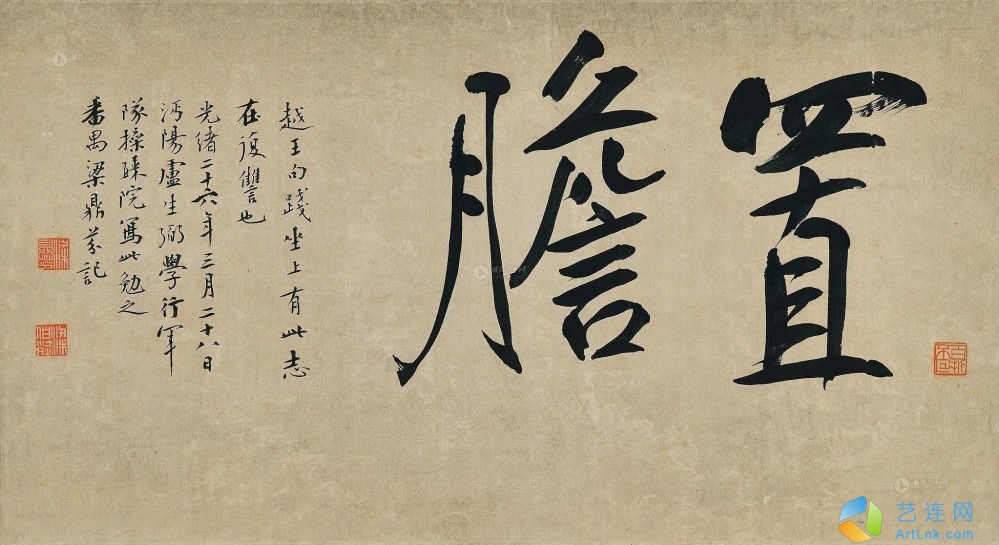 置膽
越王句踐坐上有此志
在復讐也
光緒二十六年三月二十八日
沔陽盧生弼學行軍
隊操錬院寫此勉之
番禺梁鼎芬記
艺连网
ArtLnk.com